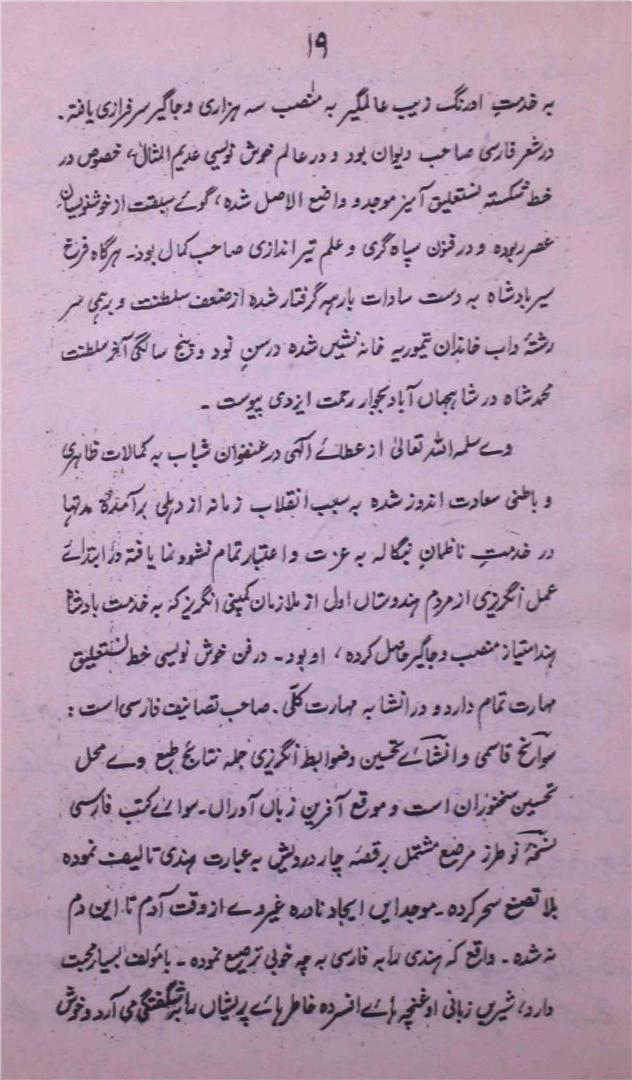 ۱۹
بہ خدمتِ اورنگ زیب عالمگیر بہ منصب سہ ہزاری و جاگیر سرفرازی یافتہ۔
در شعر فارسی صاحب دیوان بود و در عالم خوش نویسی عدیم المثال، خصوص در
خط شکستہ نستعلیق آمیز موجد و واضع الاصل شدہ، گوئے سبقت از خوشنویسان
عصر ربودہ و در فنون سپاہ گری و علم تیر اندازی صاحب کمال بود۔ ہرگاہ فرخ
سیر بادشاہ بہ دست سادات بارہہ گرفتار شدہ از ضعف سلطنت و برہمی سر
رشتۂ داب خاندان تیموریہ خانہ نشیں شدہ در سنِ نود و پنج سالگی آخر سلطنت
محمد شاہ در شاہجہاں آباد بجوار رحمت ایزدی پیوست۔
وے سلمہ اللہ تعالیٰ از عطائے الٰہی در عنفوان شباب بہ کمالات ظاہری
و باطنی سعادت اندوز شدہ بہ سبب انقلاب زمانہ از دہلی برآمدہ مدتہا
در خدمتِ ناظمان بنگالہ بہ عزت و اعتبار تمام نشوونما یافتہ در ابتدائے
عمل انگریزی از مردم ہندوستاں اول از ملازمان کمپنی انگریز کہ بہ خدمت بادشاہ
ہند امتیاز منصب و جاگیر حاصل کردہ، او بود۔ در فن خوش نویسی خط نستعلیق
مہارت تمام دارد و در انشا بہ مہارت کلّی۔ صاحب تصانیف فارسی است:
تواریخ قاسمی و انشائے تحسین و ضوابط انگریزی جملہ نتائج طبع وے محل
تحسین سخنوران است و موقع آفرین زباں آوراں۔ سوائے کتب فارسی
نسخۂ نو طرز مرصع مشتمل بر قصۂ چار درویش بہ عبارت ہندی تالیف نمودہ
بلا تصنع سحر کردہ۔ موجد ایں ایجاد نادرہ غیر وے از وقت آدم تا این دم
نہ شدہ۔ واقع کہ ہندی را بہ فارسی بہ چہ خوبی ترصیع نمودہ۔ با مؤلف بسیار محبت
دارد، شیریں زبانی او غنچہ ہائے افسردہ خاطر ہائے پریشاں را بہ شگفتگی می آرد و خوش